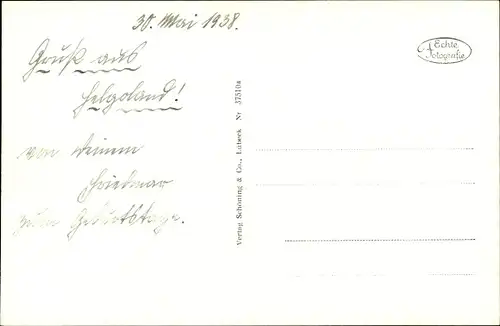 30. Mai 1938.
Gruß aus
Helgoland!
von Deinem
Friedmar
zum Geburtstage.
Echte
Fotografie
Verlag Schöning & Co., Lübeck Nr 37510a